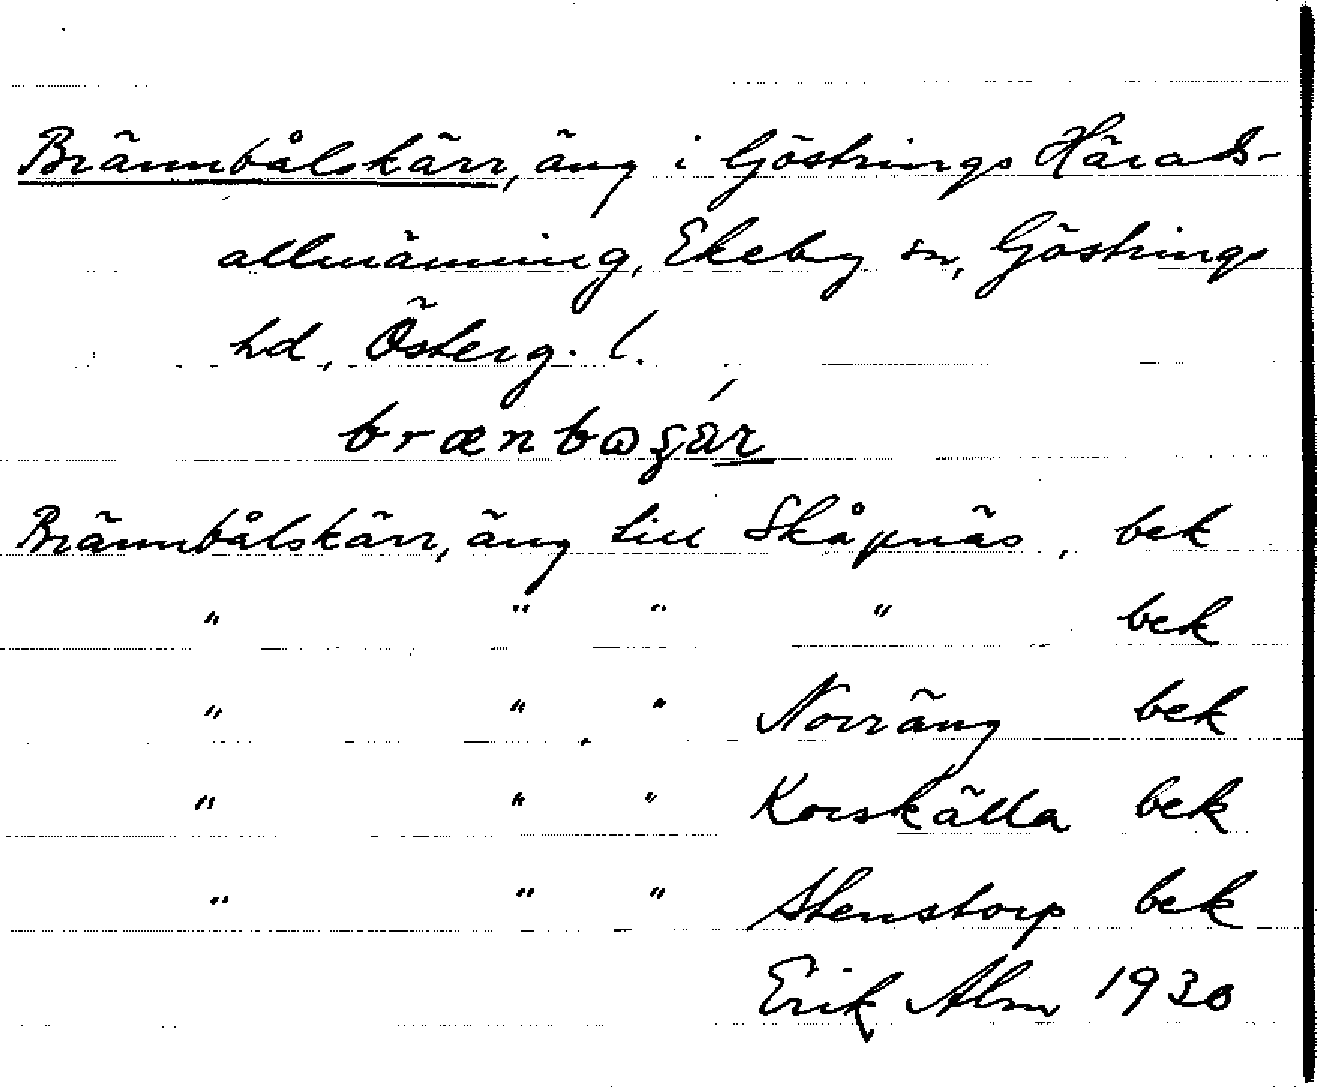 Brännbålskärr, äng i Göstrings Härads-
allmänning, Ekeby sn, Göstrings
hd, Österg. l.
Brännbålskärr, äng till Skåpnäs, bek
" " " " bek
" " " Norräng bek
" " " Korskälla bek
" " " Stenstorp bek
Erik Alm 1930